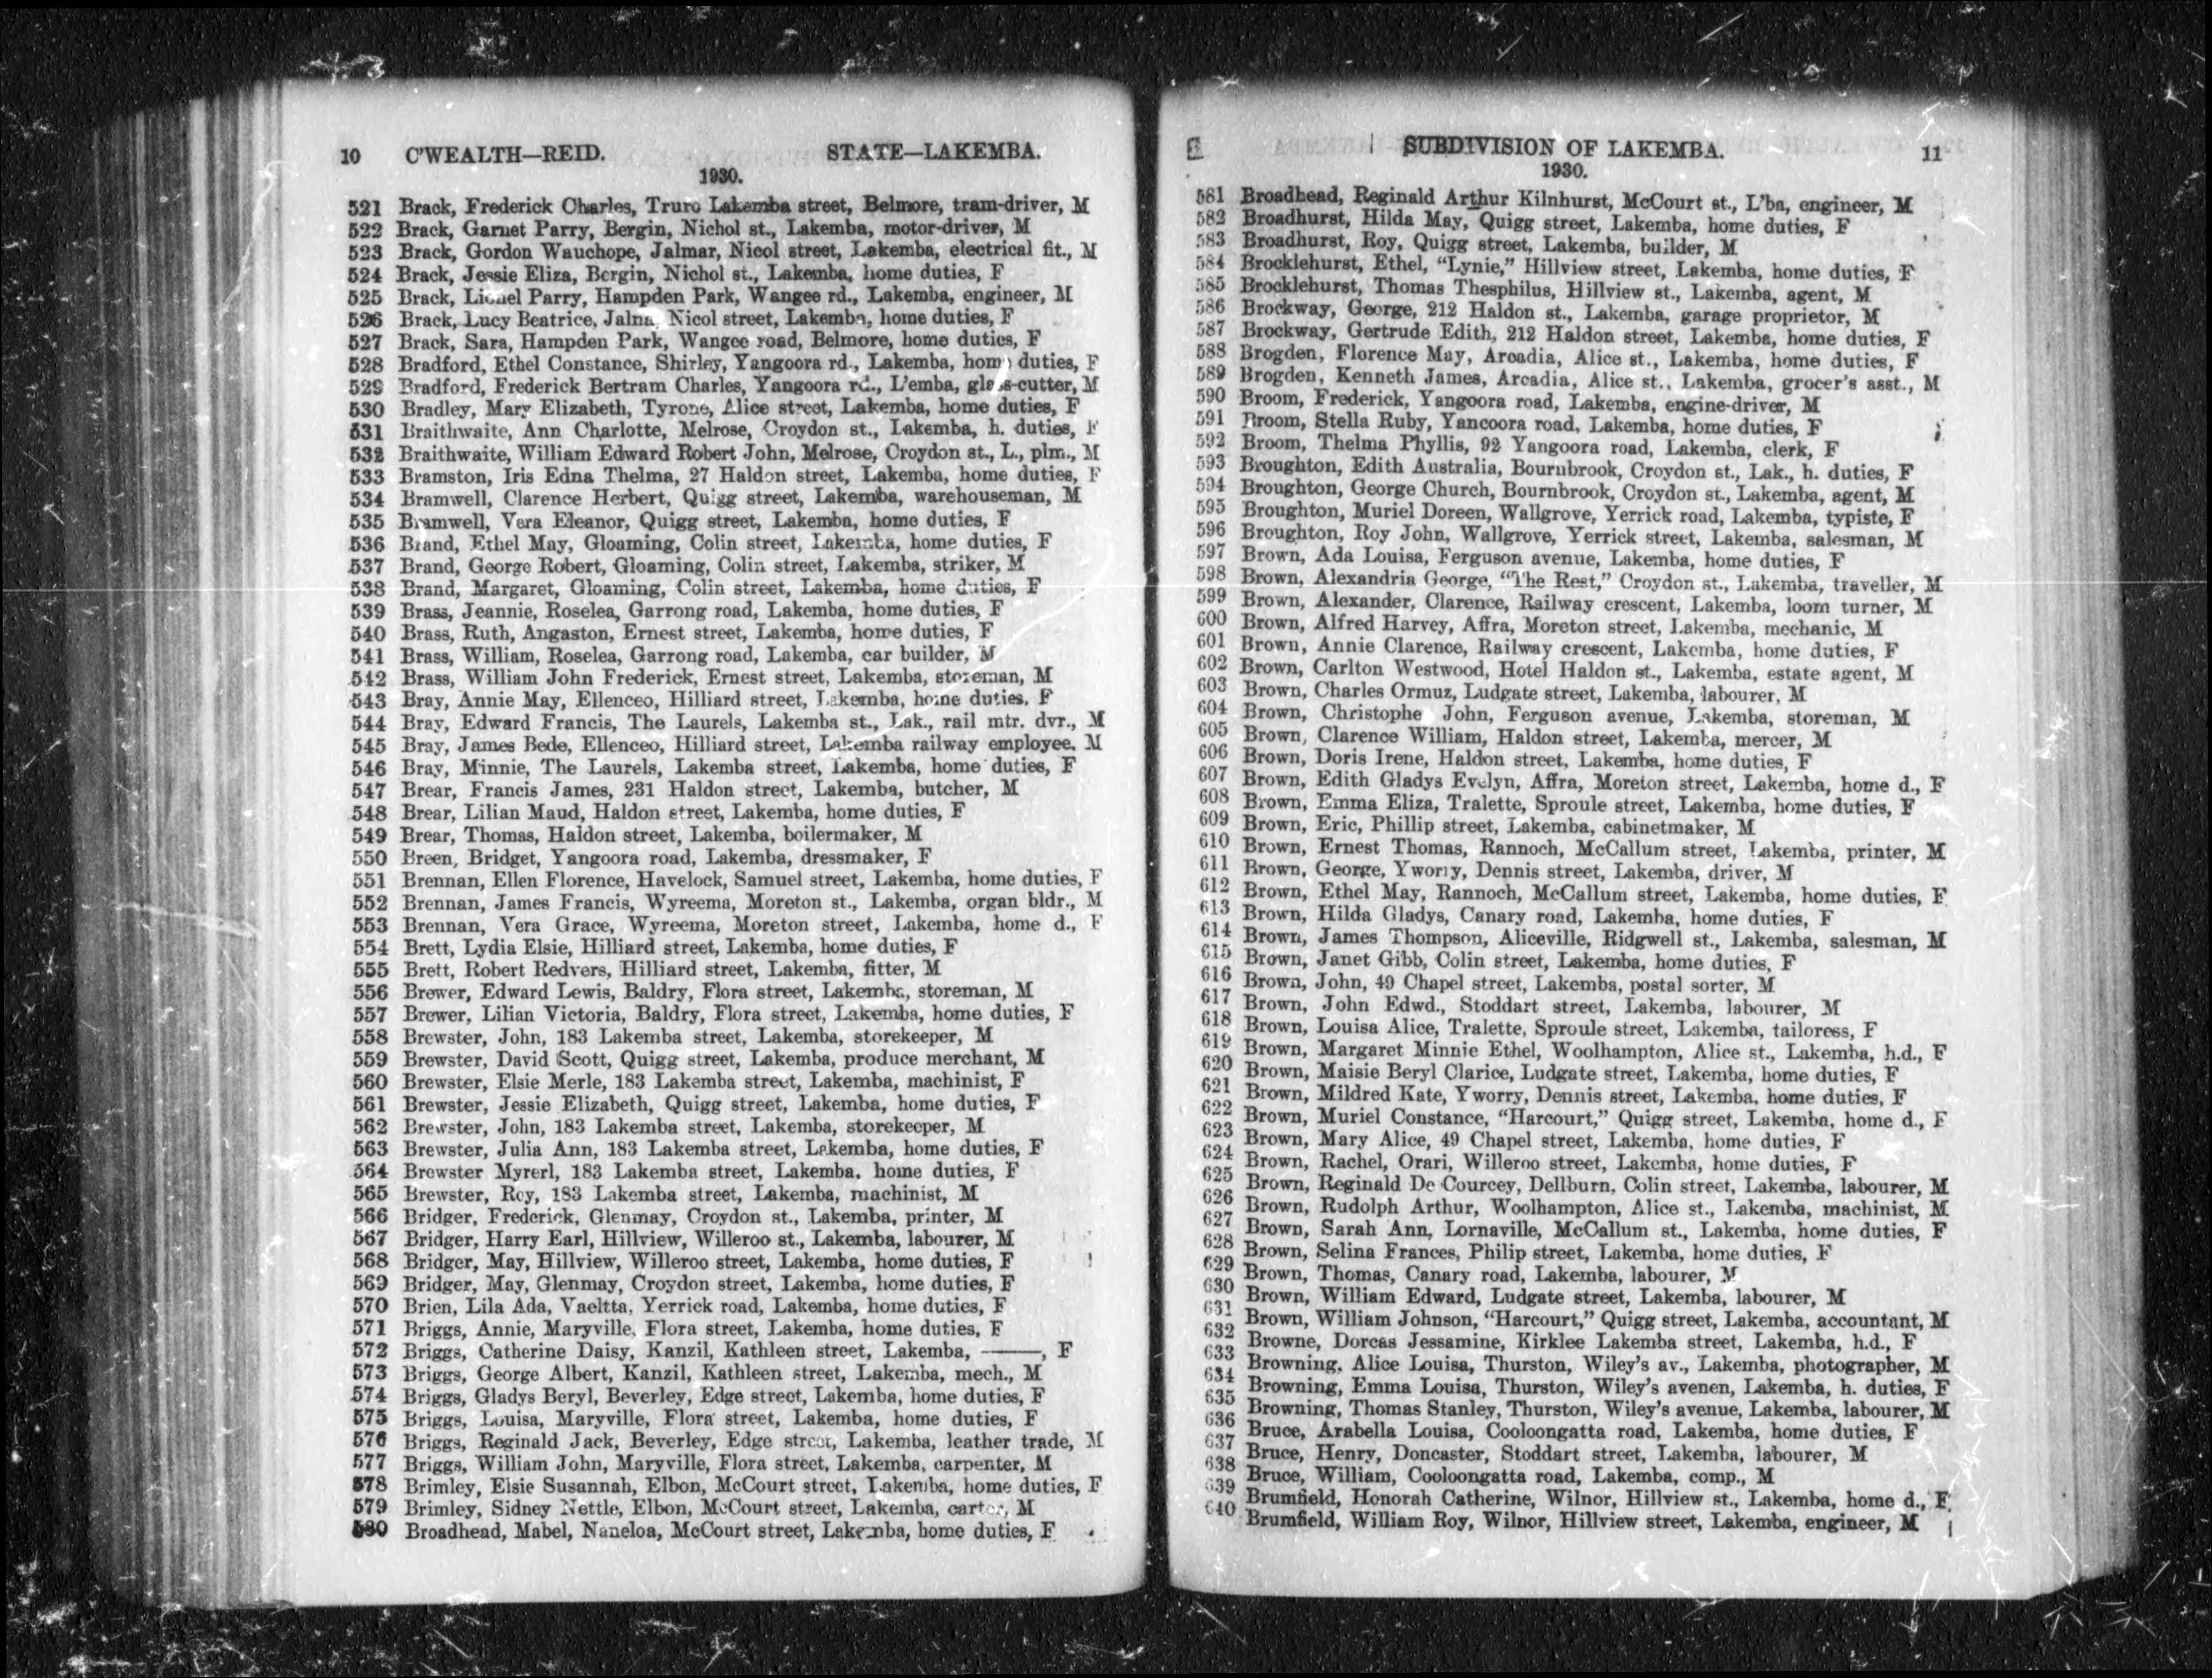 10 C'WEALTH—REID. STATE—LAKEMBA.
1930.
521 Brack, Frederick Charles, Truro Lakemba street, Belmore, tram-driver, M
522 Brack, Garnet Parry, Bergin, Nichol st., Lakemba, motor-driver, M
523 Brack, Gordon Wauchope, Jalmar, Nicol street, Lakemba, electrical fit., M
524 Brack, Jessie Eliza, Bergin, Nichol st., Lakemba, home duties, F
525 Brack, Lionel Parry, Hampden Park, Wangee rd., Lakemba, engineer, M
526 Brack, Lucy Beatrice, Jalna, Nicol street, Lakemba, home duties, F
527 Brack, Sara, Hampden Park, Wangee road, Belmore, home duties, F
528 Bradford, Ethel Constance, Shirley, Yangoora rd., Lakemba, home duties, F
529 Bradford, Frederick Bertram Charles, Yangoora rd., L'emba, glass-cutter, M
530 Bradley, Mary Elizabeth, Tyrone, Alice street, Lakemba, home duties, F
531 Braithwaite, Ann Charlotte, Melrose, Croydon st., Lakemba, h. duties, F
532 Braithwaite, William Edward Robert John, Melrose, Croydon st., L., plm., M
533 Bramston, Iris Edna Thelma, 27 Haldon street, Lakemba, home duties, F
534 Bramwell, Clarence Herbert, Quigg street, Lakemba, warehouseman, M
535 Bramwell, Vera Eleanor, Quigg street, Lakemba, home duties, F
536 Brand, Ethel May, Gloaming, Colin street, Lakemba, home duties, F
537 Brand, George Robert, Gloaming, Colin street, Lakemba, striker, M
538 Brand, Margaret, Gloaming, Colin street, Lakemba, home duties, F
539 Brass, Jeannie, Roselea, Garrong road, Lakemba, home duties, F
540 Brass, Ruth, Angaston, Ernest street, Lakemba, home duties, F
541 Brass, William, Roselea, Garrong road, Lakemba, car builder, M
542 Brass, William John Frederick, Ernest street, Lakemba, storeman, M
543 Bray, Annie May, Ellenceo, Hilliard street, Lakemba, home duties, F
544 Bray, Edward Francis, The Laurels, Lakemba st., Lak., rail mtr. dvr., M
545 Bray, James Bede, Ellenceo, Hilliard street, Lakemba railway employee, M
546 Bray, Minnie, The Laurels, Lakemba street, Lakemba, home duties, F
547 Brear, Francis James, 231 Haldon street, Lakemba, butcher, M
548 Brear, Lilian Maud, Haldon street, Lakemba, home duties, F
549 Brear, Thomas, Haldon street, Lakemba, boilermaker, M
550 Breen, Bridget, Yangoora road, Lakemba, dressmaker, F
551 Brennan, Ellen Florence, Havelock, Samuel street, Lakemba, home duties, F
552 Brennan, James Francis, Wyreema, Moreton st., Lakemba, organ bldr., M
553 Brennan, Vera Grace, Wyreema, Moreton street, Lakemba, home d., F
554 Brett, Lydia Elsie, Hilliard street, Lakemba, home duties, F
555 Brett, Robert Redvers, Hilliard street, Lakemba, fitter, M
556 Brewer, Edward Lewis, Baldry, Flora street, Lakemba, storeman, M
557 Brewer, Lilian Victoria, Baldry, Flora street, Lakemba, home duties, F
558 Brewster, John, 183 Lakemba street, Lakemba, storekeeper, M
559 Brewster, David Scott, Quigg street, Lakemba, produce merchant, M
560 Brewster, Elsie Merle, 183 Lakemba street, Lakemba, machinist, F
561 Brewster, Jessie Elizabeth, Quigg street, Lakemba, home duties, F
562 Brewster, John, 183 Lakemba street, Lakemba, storekeeper, M
563 Brewster, Julia Ann, 183 Lakemba street, Lakemba, home duties, F
564 Brewster Myrerl, 183 Lakemba street, Lakemba, home duties, F
565 Brewster, Roy, 183 Lakemba street, Lakemba, machinist, M
566 Bridger, Frederick, Glenmay, Croydon st., Lakemba, printer, M
567 Bridger, Harry Earl, Hillview, Willeroo st., Lakemba, labourer, M
568 Bridger, May, Hillview, Willeroo street, Lakemba, home duties, F
569 Bridger, May, Glenmay, Croydon street, Lakemba, home duties, F
570 Brien, Lila Ada, Vaeltta, Yerrick road, Lakemba, home duties, F
571 Briggs, Annie, Maryville, Flora street, Lakemba, home duties, F
572 Briggs, Catherine Daisy, Kanzil, Kathleen street, Lakemba, ———, F
573 Briggs, George Albert, Kanzil, Kathleen street, Lakemba, mech., M
574 Briggs, Gladys Beryl, Beverley, Edge street, Lakemba, home duties, F
575 Briggs, Louisa, Maryville, Flora street, Lakemba, home duties, F
576 Briggs, Reginald Jack, Beverley, Edge street, Lakemba, leather trade, M
577 Briggs, William John, Maryville, Flora street, Lakemba, carpenter, M
578 Brimley, Elsie Susannah, Elbon, McCourt street, Lakemba, home duties, F
579 Brimley, Sidney Nettle, Elbon, McCourt street, Lakemba, carter, M
580 Broadhead, Mabel, Naneloa, McCourt street, Lakemba, home duties, F
SUBDIVISION OF LAKEMBA. 11
1930.
581 Broadhead, Reginald Arthur Kilnhurst, McCourt st., L'ba, engineer, M
582 Broadhurst, Hilda May, Quigg street, Lakemba, home duties, F
583 Broadhurst, Roy, Quigg street, Lakemba, builder, M
584 Brocklehurst, Ethel, "Lynie," Hillview street, Lakemba, home duties, F
585 Brocklehurst, Thomas Thesphilus, Hillview st., Lakemba, agent, M
586 Brockway, George, 212 Haldon st., Lakemba, garage proprietor, M
587 Brockway, Gertrude Edith, 212 Haldon street, Lakemba, home duties, F
588 Brogden, Florence May, Arcadia, Alice st., Lakemba, home duties, F
589 Brogden, Kenneth James, Arcadia, Alice st., Lakemba, grocer's asst., M
590 Broom, Frederick, Yangoora road, Lakemba, engine-driver, M
591 Broom, Stella Ruby, Yancoora road, Lakemba, home duties, F
592 Broom, Thelma Phyllis, 92 Yangoora road, Lakemba, clerk, F
593 Broughton, Edith Australia, Bournbrook, Croydon st., Lak., h. duties, F
594 Broughton, George Church, Bournbrook, Croydon st., Lakemba, agent, M
595 Broughton, Muriel Doreen, Wallgrove, Yerrick road, Lakemba, typiste, F
596 Broughton, Roy John, Wallgrove, Yerrick street, Lakemba, salesman, M
597 Brown, Ada Louisa, Ferguson avenue, Lakemba, home duties, F
598 Brown, Alexandria George, "The Rest," Croydon st., Lakemba, traveller, M
599 Brown, Alexander, Clarence, Railway crescent, Lakemba, loom turner, M
600 Brown, Alfred Harvey, Affra, Moreton street, Lakemba, mechanic, M
601 Brown, Annie Clarence, Railway crescent, Lakemba, home duties, F
602 Brown, Carlton Westwood, Hotel Haldon st., Lakemba, estate agent, M
603 Brown, Charles Ormuz, Ludgate street, Lakemba, labourer, M
604 Brown, Christophe John, Ferguson avenue, Lakemba, storeman, M
605 Brown, Clarence William, Haldon street, Lakemba, mercer, M
606 Brown, Doris Irene, Haldon street, Lakemba, home duties, F
607 Brown, Edith Gladys Evelyn, Affra, Moreton street, Lakemba, home d., F
608 Brown, Emma Eliza, Tralette, Sproule street, Lakemba, home duties, F
609 Brown, Eric, Phillip street, Lakemba, cabinetmaker, M
610 Brown, Ernest Thomas, Rannoch, McCallum street, Lakemba, printer, M
611 Brown, George, Yworry, Dennis street, Lakemba, driver, M
612 Brown, Ethel May, Rannoch, McCallum street, Lakemba, home duties, F
613 Brown, Hilda Gladys, Canary road, Lakemba, home duties, F
614 Brown, James Thompson, Aliceville, Ridgwell st., Lakemba, salesman, M
615 Brown, Janet Gibb, Colin street, Lakemba, home duties, F
616 Brown, John, 49 Chapel street, Lakemba, postal sorter, M
617 Brown, John Edwd., Stoddart street, Lakemba, labourer, M
618 Brown, Louisa Alice, Tralette, Sproule street, Lakemba, tailoress, F
619 Brown, Margaret Minnie Ethel, Woolhampton, Alice st., Lakemba, h.d., F
620 Brown, Maisie Beryl Clarice, Ludgate street, Lakemba, home duties, F
621 Brown, Mildred Kate, Yworry, Dennis street, Lakemba, home duties, F
622 Brown, Muriel Constance, "Harcourt," Quigg street, Lakemba, home d., F
623 Brown, Mary Alice, 49 Chapel street, Lakemba, home duties, F
624 Brown, Rachel, Orari, Willeroo street, Lakemba, home duties, F
625 Brown, Reginald De Courcey, Dellburn, Colin street, Lakemba, labourer, M
626 Brown, Rudolph Arthur, Woolhampton, Alice st., Lakemba, machinist, M
627 Brown, Sarah Ann, Lornaville, McCallum st., Lakemba, home duties, F
628 Brown, Selina Frances, Philip street, Lakemba, home duties, F
629 Brown, Thomas, Canary road, Lakemba, labourer, M
630 Brown, William Edward, Ludgate street, Lakemba, labourer, M
631 Brown, William Johnson, "Harcourt," Quigg street, Lakemba, accountant, M
632 Browne, Dorcas Jessamine, Kirklee Lakemba street, Lakemba, h.d., F
633 Browning, Alice Louisa, Thurston, Wiley's av., Lakemba, photographer, M
634 Browning, Emma Louisa, Thurston, Wiley's avenen, Lakemba, h. duties, F
635 Browning, Thomas Stanley, Thurston, Wiley's avenue, Lakemba, labourer, M
636 Bruce, Arabella Louisa, Cooloongatta road, Lakemba, home duties, F
637 Bruce, Henry, Doncaster, Stoddart street, Lakemba, labourer, M
638 Bruce, William, Cooloongatta road, Lakemba, comp., M
639 Brumfield, Honorah Catherine, Wilnor, Hillview st., Lakemba, home d., F
640 Brumfield, William Roy, Wilnor, Hillview street, Lakemba, engineer, M